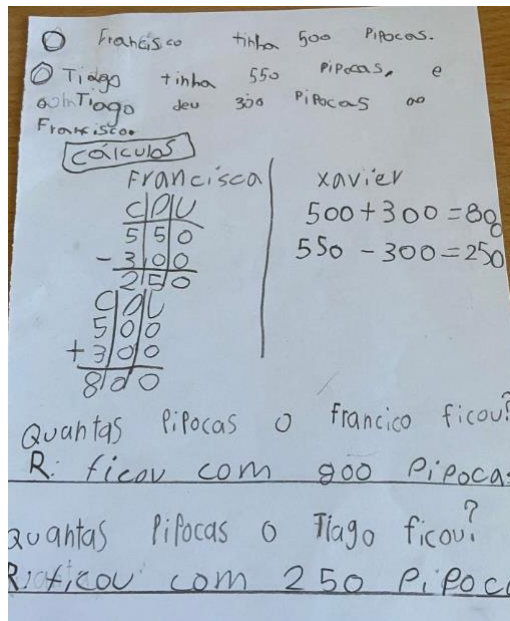 O Francisco tinha 500 Pipocas.
O Tiago tinha 550 Pipocas, e
o Tiago deu 300 Pipocas ao
Francisco.
Cálculos
Francisca
C D U
5 5 0
- 3 0 0
2 5 0
C D U
5 0 0
+ 3 0 0
8 0 0
xavier
500 + 300 = 800
550 - 300 = 250
Quantas Pipocas o Francico ficou?
R: ficou com 800 Pipocas
Quantas Pipocas o Tiago ficou?
R: ficou com 250 Pipoc